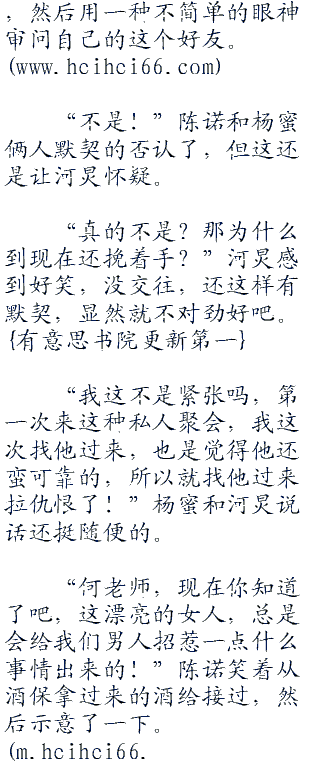 ，然后用一种不简单的眼神
审问自己的这个好友。
(www.hcihci66.com)
“不是！”陈诺和杨蜜
俩人默契的否认了，但这还
是让河炅怀疑。
“真的不是？那为什么
到现在还挽着手？”河炅感
到好笑，没交往，还这样有
默契，显然就不对劲好吧。
{有意思书院更新第一}
“我这不是紧张吗，第
一次来这种私人聚会，我这
次找他过来，也是觉得他还
蛮可靠的，所以就找他过来
拉仇恨了！”杨蜜和河炅说
话还挺随便的。
“何老师，现在你知道
了吧，这漂亮的女人，总是
会给我们男人招惹一点什么
事情出来的！”陈诺笑着从
酒保拿过来的酒给接过，然
后示意了一下。
(m.hcihci66.